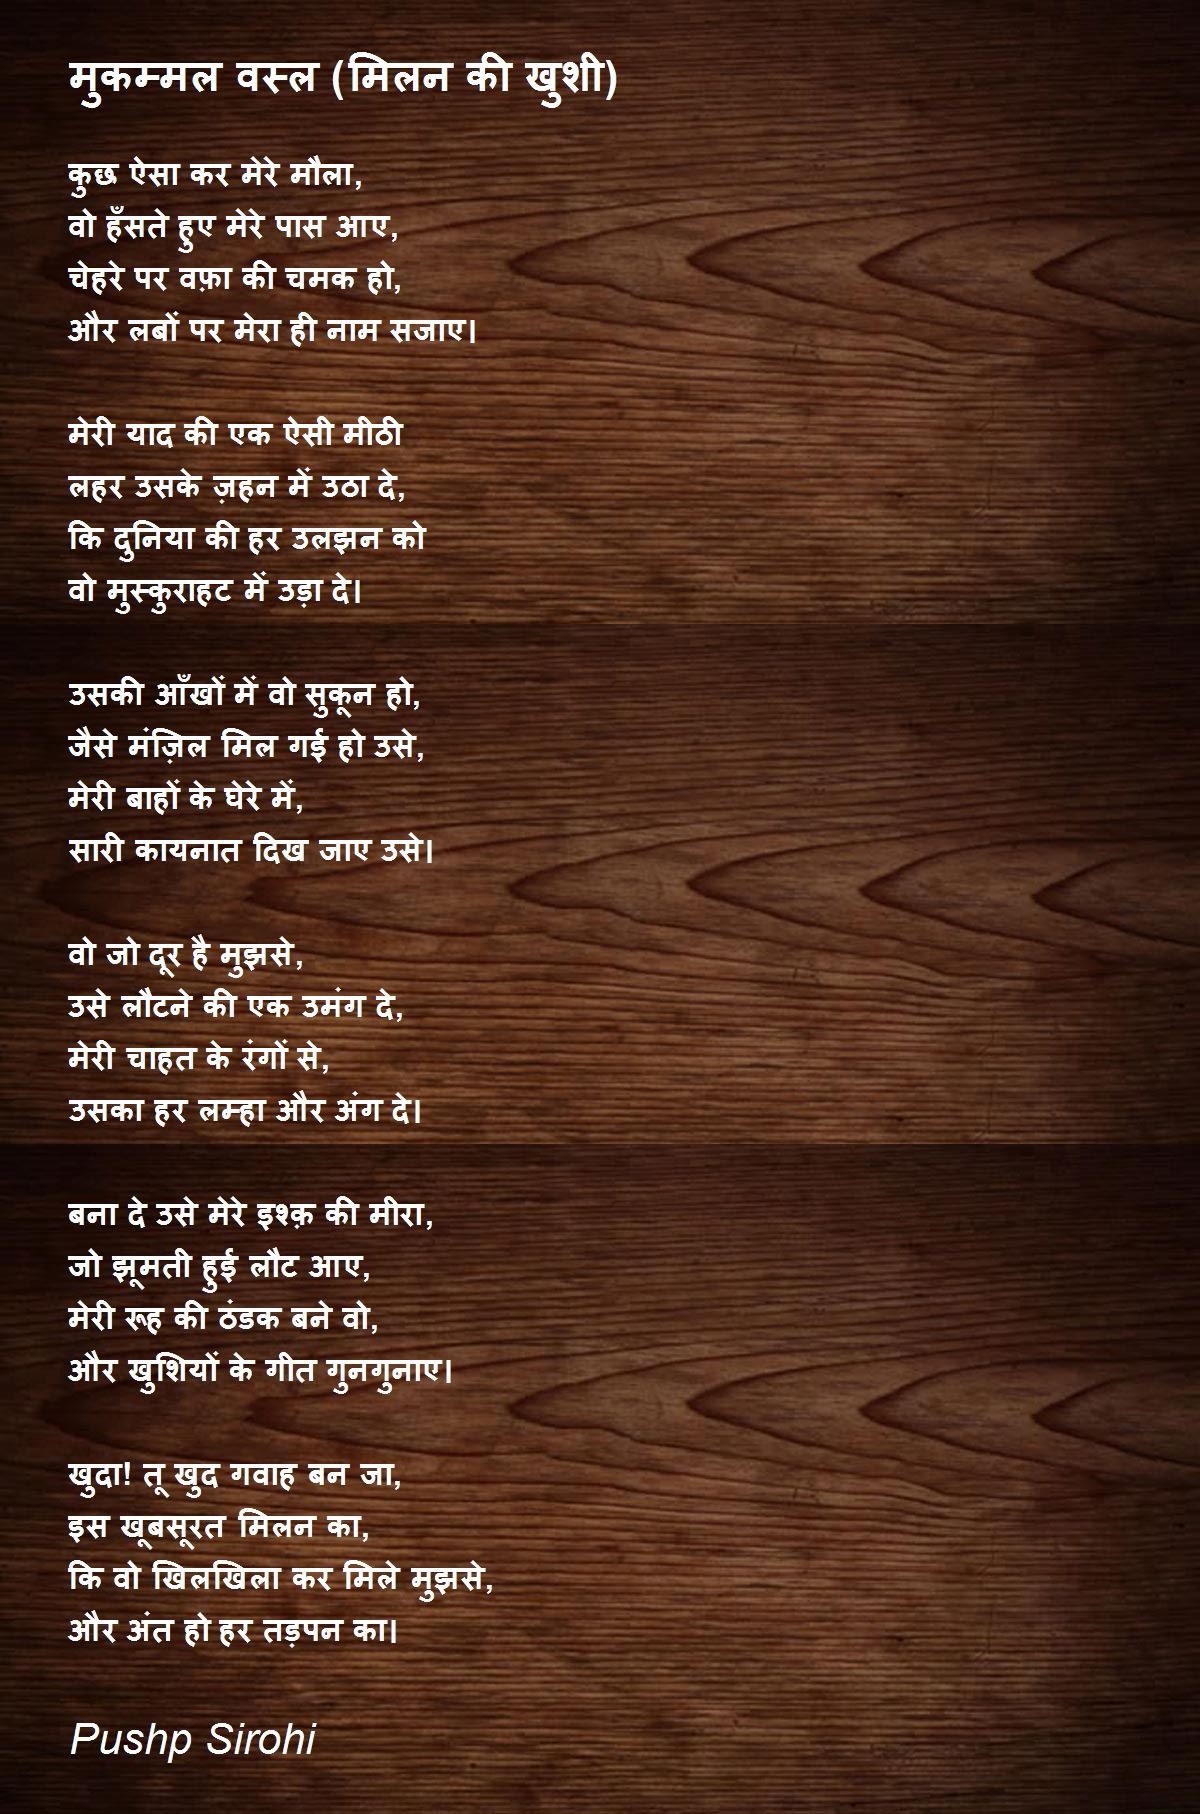 मुकम्मल वस्ल (मिलन की खुशी)
कुछ ऐसा कर मेरे मौला,
वो हँसते हुए मेरे पास आए,
चेहरे पर वफ़ा की चमक हो,
और लबों पर मेरा ही नाम सजाए।
मेरी याद की एक ऐसी मीठी
लहर उसके ज़हन में उठा दे,
कि दुनिया की हर उलझन को
वो मुस्कुराहट में उड़ा दे।
उसकी आँखों में वो सुकून हो,
जैसे मंज़िल मिल गई हो उसे,
मेरी बाहों के घेरे में,
सारी कायनात दिख जाए उसे।
वो जो दूर है मुझसे,
उसे लौटने की एक उमंग दे,
मेरी चाहत के रंगों से,
उसका हर लम्हा और अंग दे।
बना दे उसे मेरे इश्क़ की मीरा,
जो झूमती हुई लौट आए,
मेरी रूह की ठंडक बने वो,
और खुशियों के गीत गुनगुनाए।
खुदा! तू खुद गवाह बन जा,
इस खूबसूरत मिलन का,
कि वो खिलखिला कर मिले मुझसे,
और अंत हो हर तड़पन का।
Pushp Sirohi